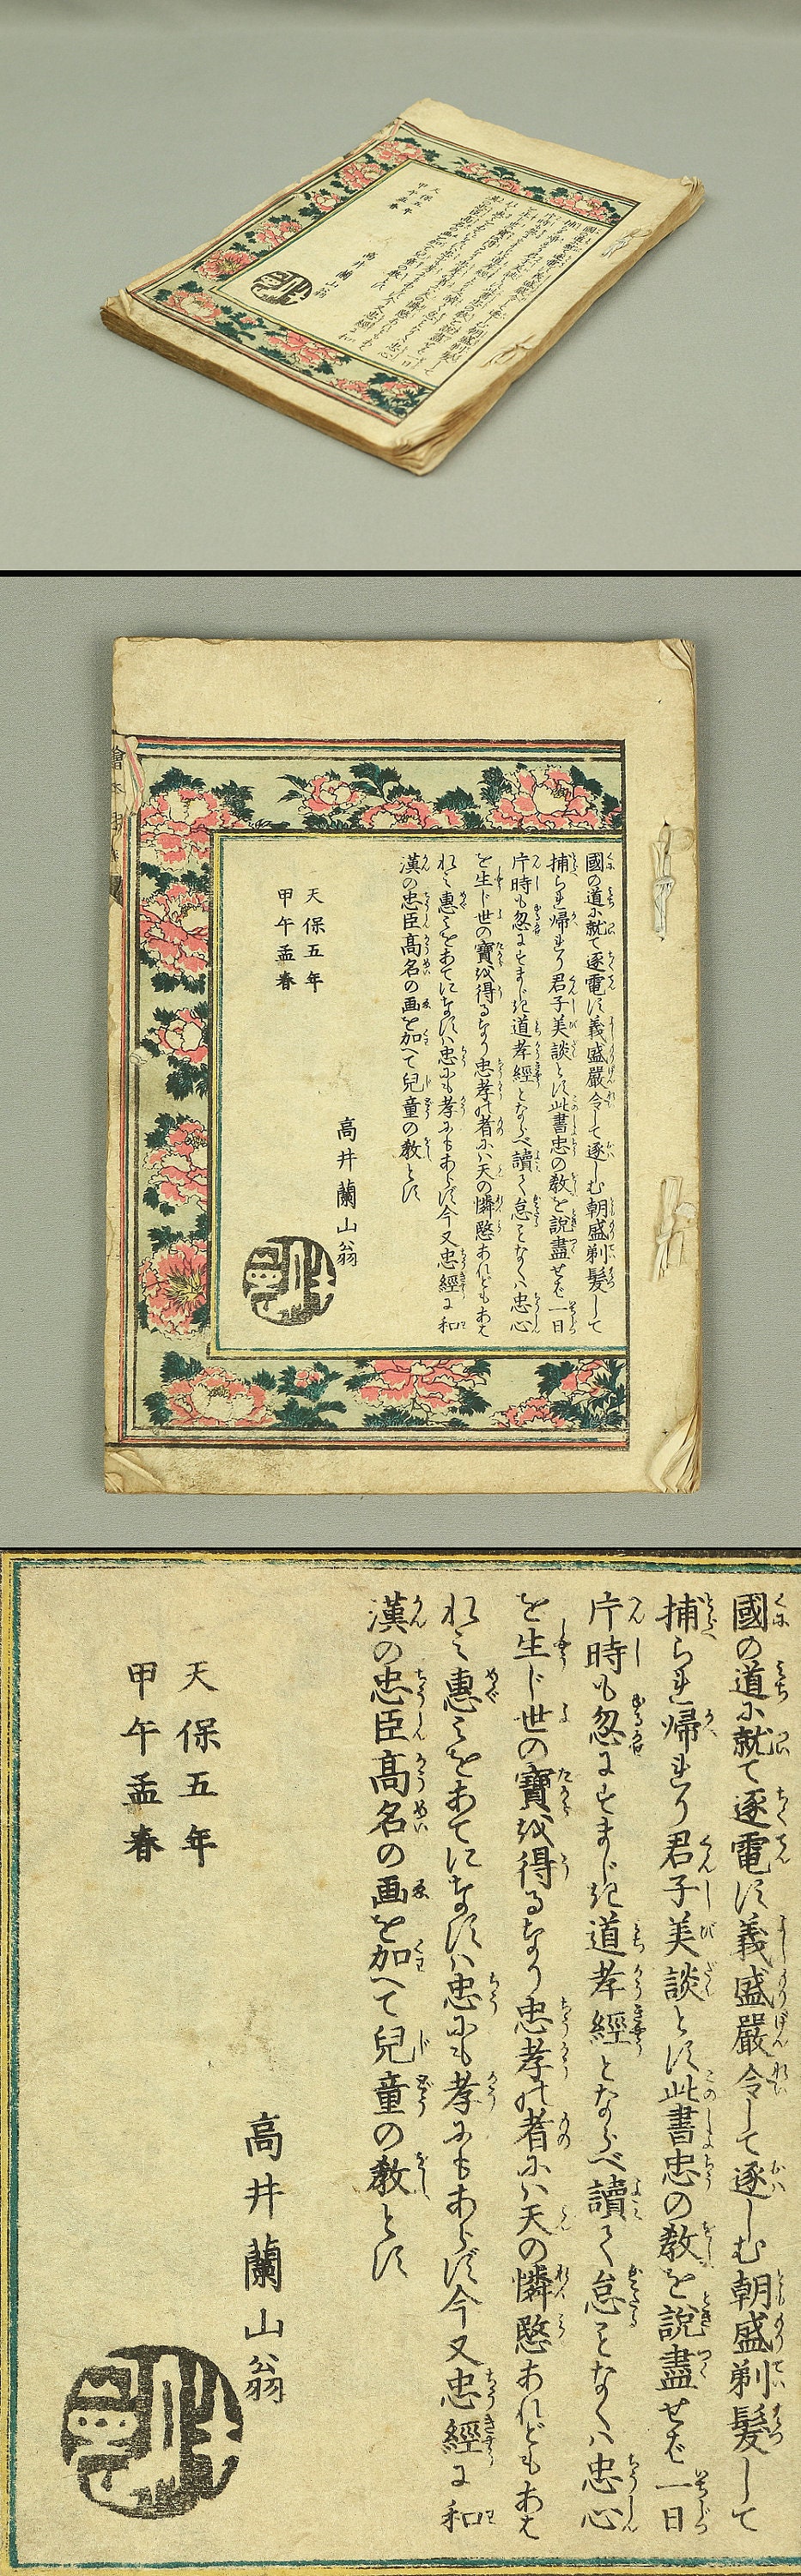 國の道に就て逐電す義盛嚴令して逐しむ朝盛剃髪して
捕られ帰れり君子美談とす此書忠の教を説盡せば一日
片時も忽にすまじき道孝經とならべ讀て怠ることなくハ忠心
を生じ世の寶を得るなり忠孝の者にハ天の憐愍あれどもあま
れミ惠ミをあてになすハ忠にも孝にもあらず今又忠經に和
漢の忠臣高名の画を加へて兒童の教とす
天保五年
甲午孟春
高井蘭山翁